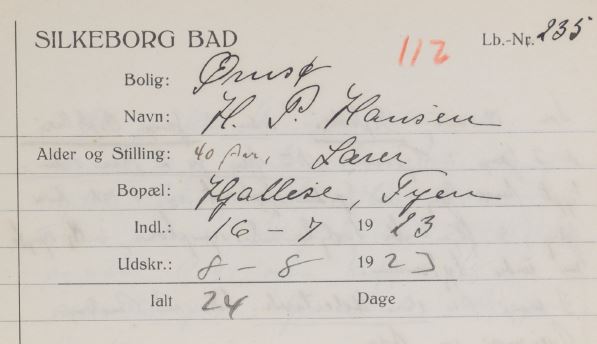 SILKEBORG BAD 112 Lb.-Nr. 235
Bolig: Ørnsø
Navn: H. P. Hansen
Alder og Stilling: 40 Aar, Lærer
Bopæl: Hjallese, Fyen
Indl.: 16 - 7 1923
Udskr.: 8. - 8 1923
Ialt 24 Dage